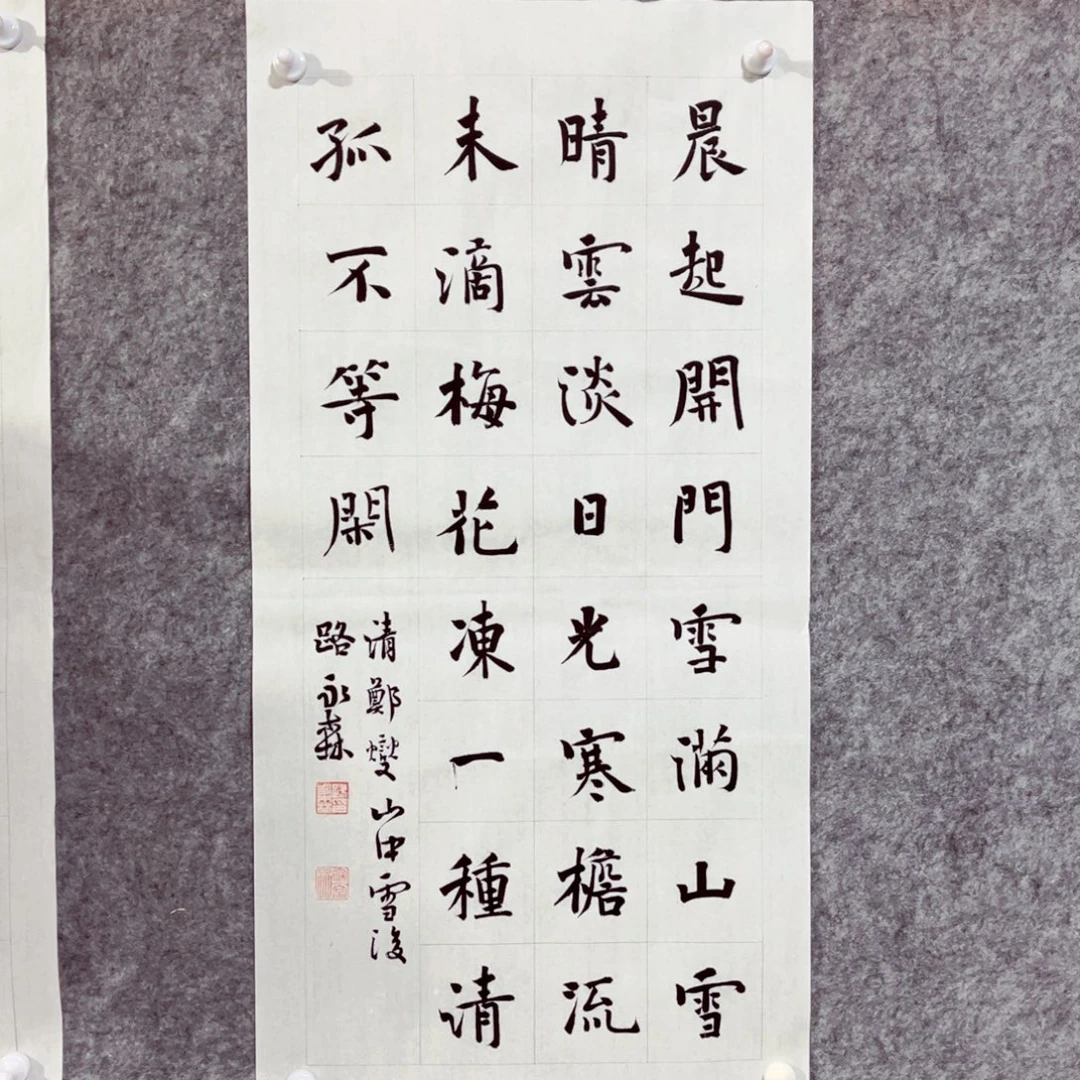 晨起開門雪滿山雪
晴雲淡日光寒檐流
未滴梅花凍一種清
孤不等閑
清鄭燮山中雪後
路永森